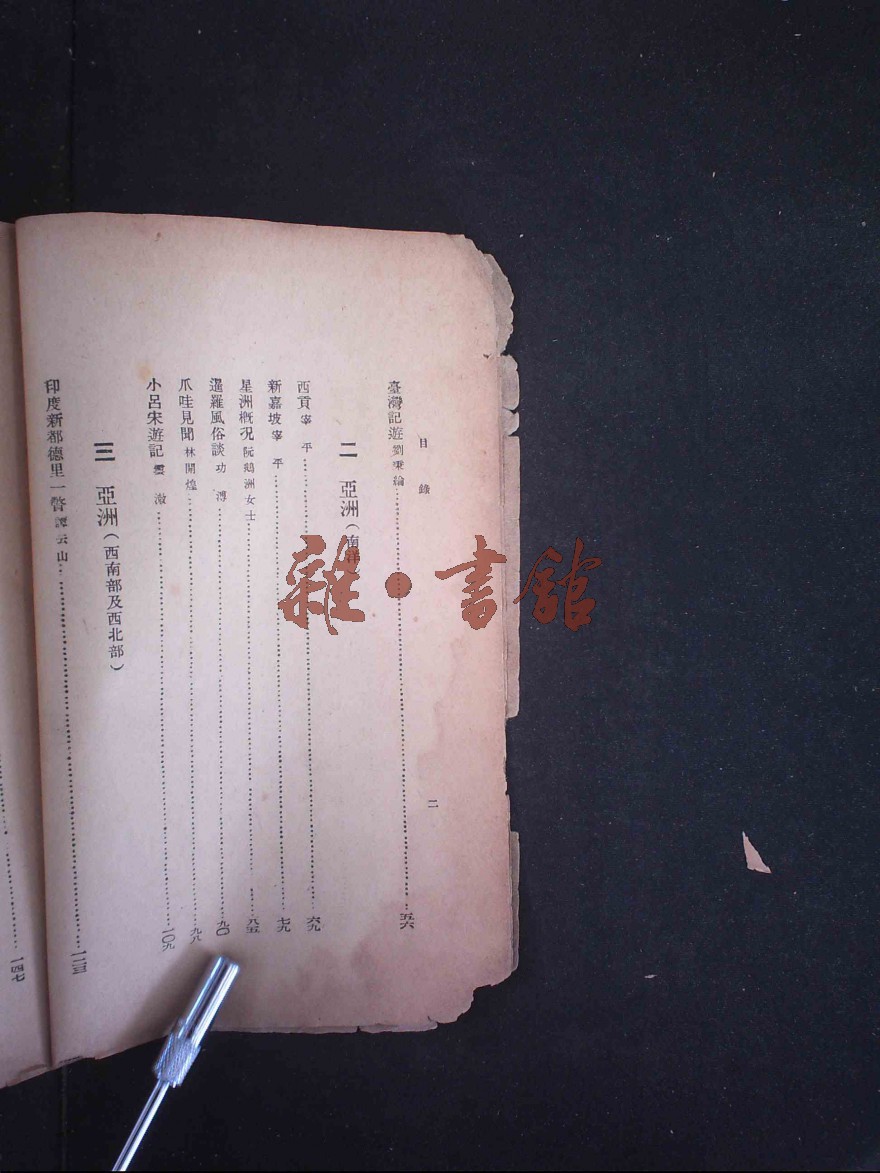 目錄
二
臺灣記遊 劉秉綸 五六
二 亞洲（南洋）
西貢 寧平 六九
新嘉坡 寧平 七九
星洲概況 阮鵝洲女士 八五
暹羅風俗談 功溥 九〇
爪哇見聞 林開煌 九八
小呂宋遊記 雲 一〇九
三 亞洲（西南部及西北部）
印度新都德里一瞥 譚云山 一二三
一四七
雜•書館